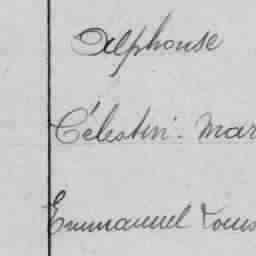 Alphonse
Célestin - Mar
Emmanuel Louis